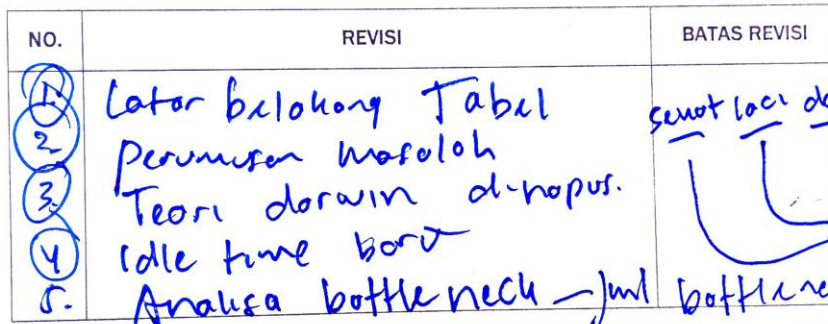 NO. REVISI BATAS REVISI
1. Latar belakang Tabel
2 Perumusan masalah
3. Teori darwin dihapus.
4 Idle time baru
5. Analisa bottle neck – Jml
laci